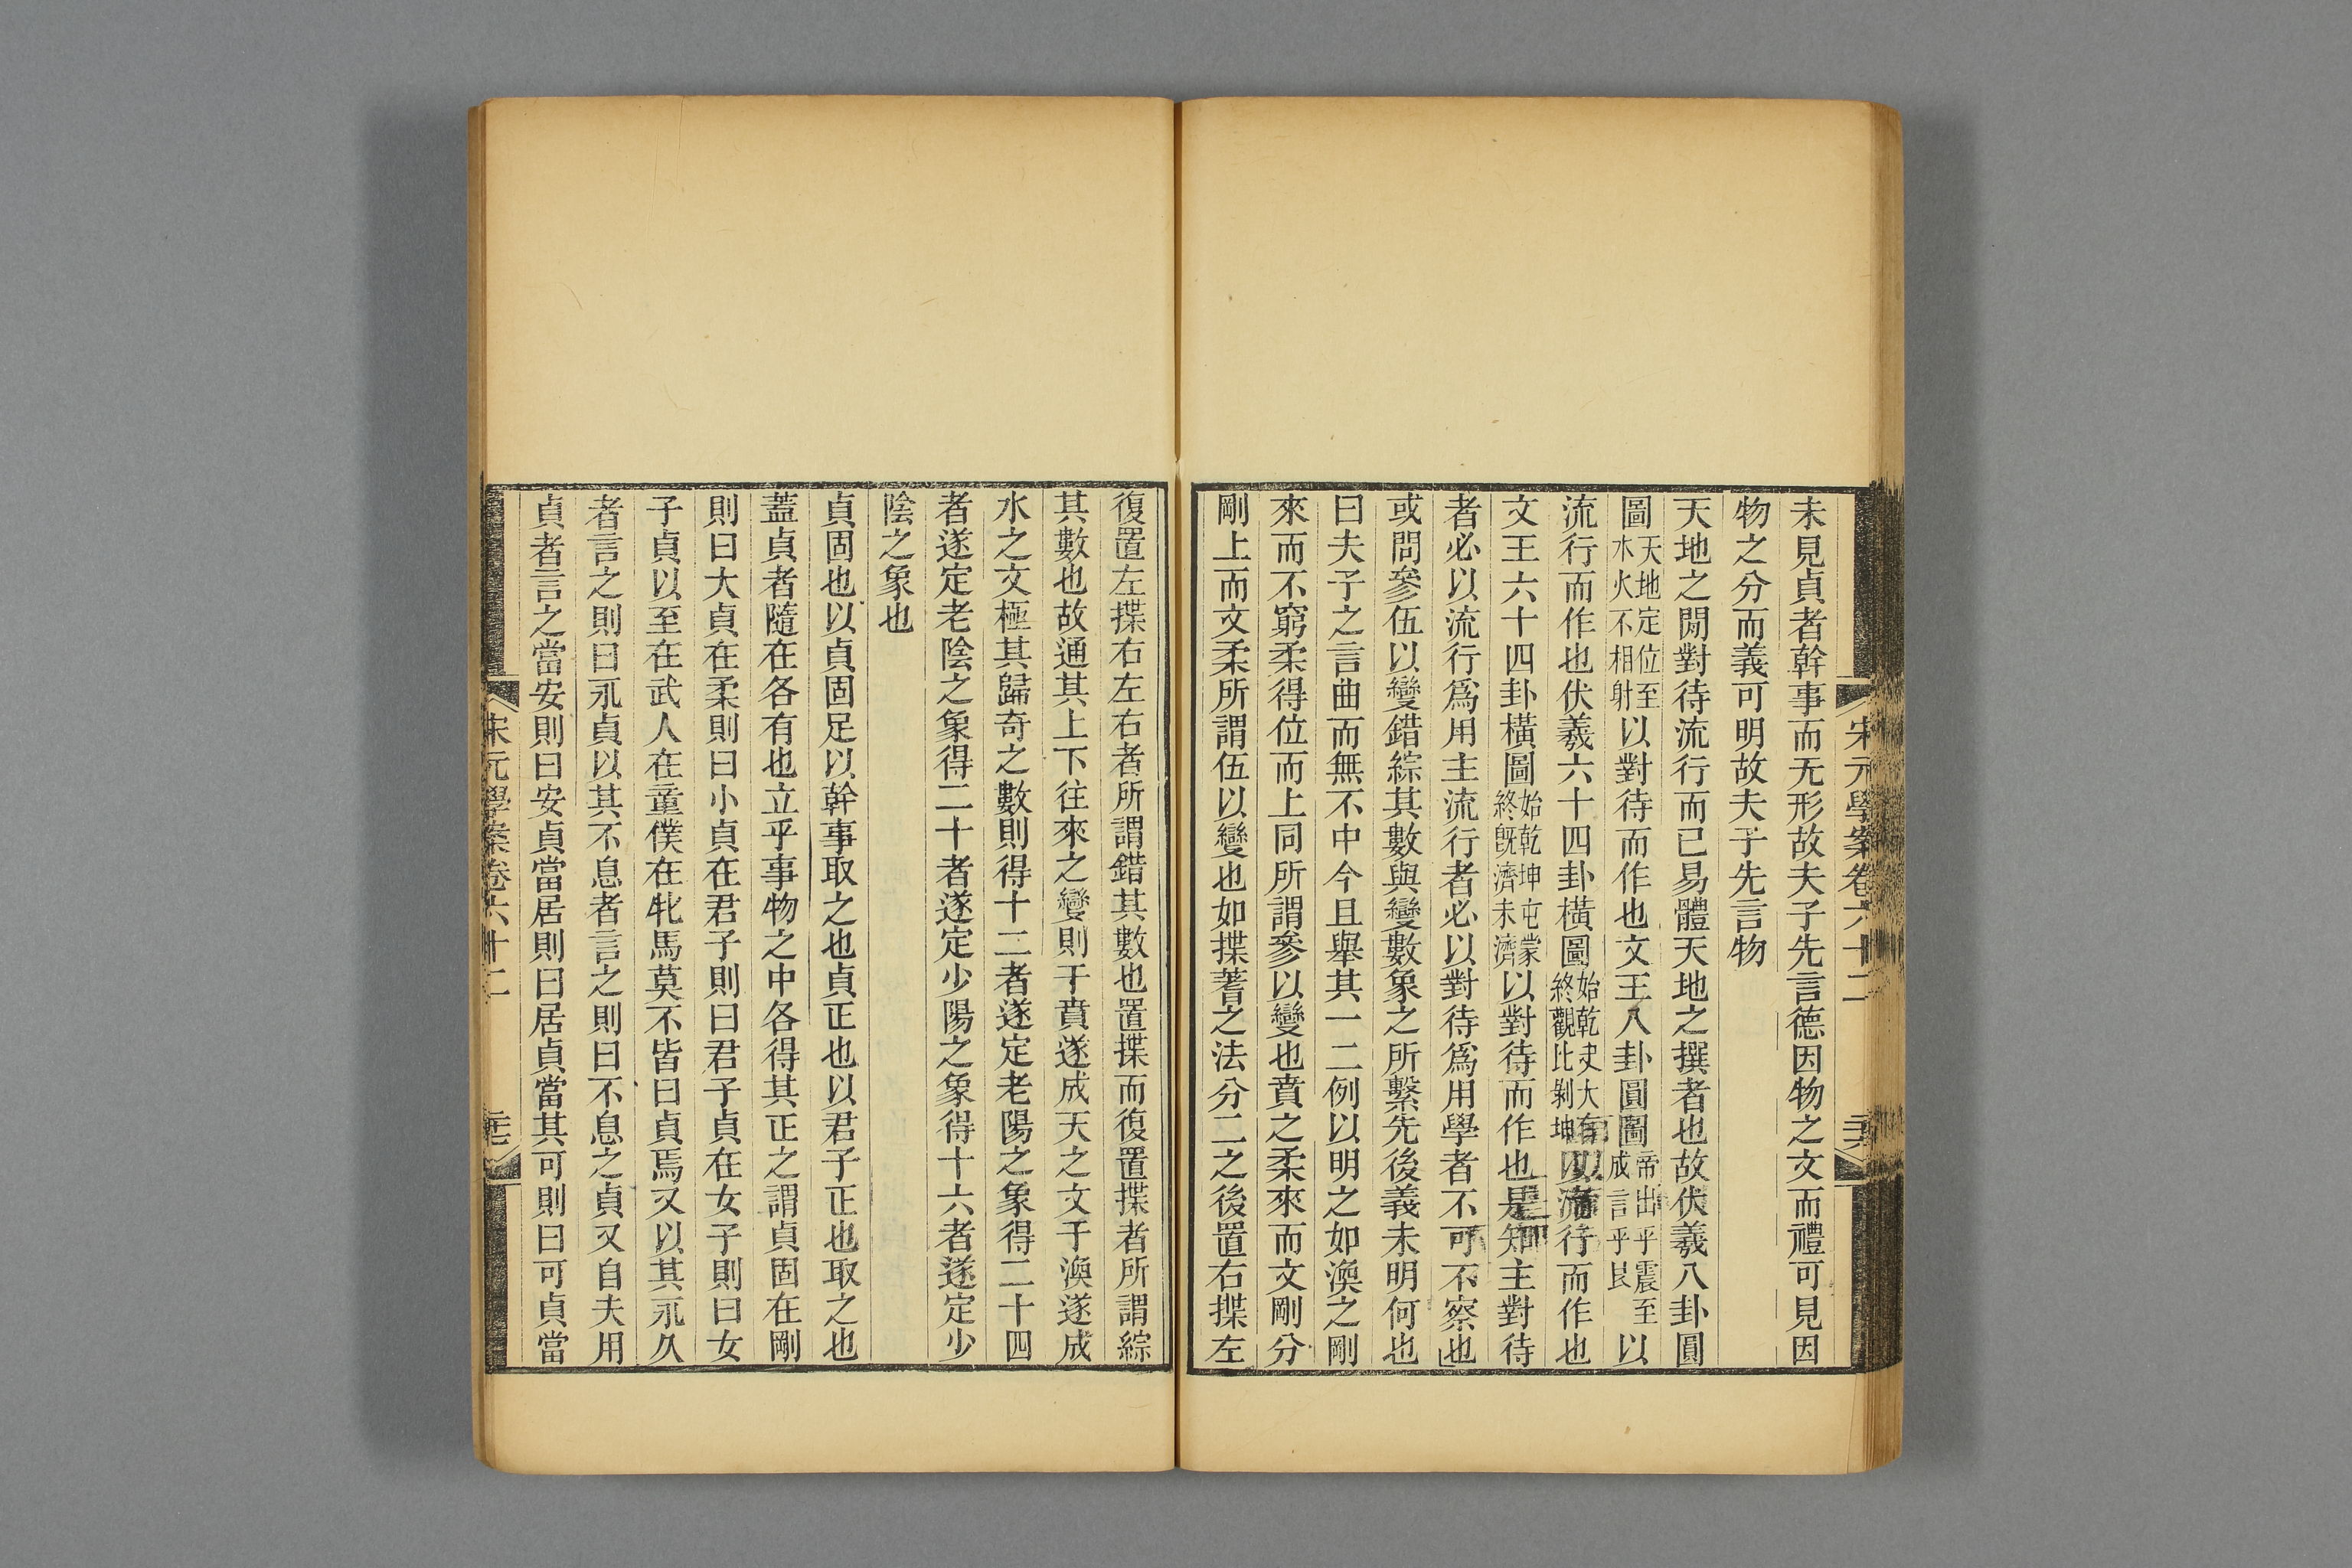 宋元學案卷六十二
未見貞者幹事而无形故夫子先言德因物之文而禮可見因
物之分而義可明故夫子先言物
天地之閒對待流行而已易體天地之撰者也故伏羲八卦圓
圖天地定位至水火不相射以對待而作也文王八卦圓圖帝出乎震至成言乎艮以
流行而作也伏羲六十四卦橫圖始乾夬大有終觀比剝坤以流行而作也
文王六十四卦橫圖始乾坤屯蒙終旣濟未濟以對待而作也是知主對待
者必以流行爲用主流行者必以對待爲用學者不可不察也
或問參伍以變錯綜其數與變數象之所繫先後義未明何也
曰夫子之言曲而無不中今且舉其一二例以明之如渙之剛
來而不窮柔得位而上同所謂參以變也賁之柔來而文剛分
剛上而文柔所謂伍以變也如揲蓍之法分二之後置右揲左
復置左揲右左右者所謂錯其數也置揲而復置揲者所謂綜
其數也故通其上下往來之變則于賁遂成天之文于渙遂成
水之文極其歸奇之數則得十二者遂定老陽之象得二十四
者遂定老陰之象得二十者遂定少陽之象得十六者遂定少
陰之象也
貞固也以貞固足以幹事取之也貞正也以君子正也取之也
蓋貞者隨在各有也立乎事物之中各得其正之謂貞固在剛
則曰大貞在柔則曰小貞在君子則曰君子貞在女子則曰女
子貞以至在武人在童僕在牝馬莫不皆曰貞焉又以其永久
者言之則曰永貞以其不息者言之則曰不息之貞又自夫用
貞者言之當安則曰安貞當居則曰居貞當其可則曰可貞當
宋元學案卷六十二